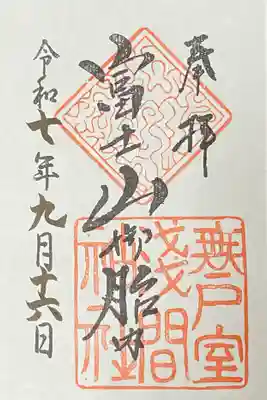 奉拝
富士山御胎内
令和七年九月十六日
無戸室
淺間
神社